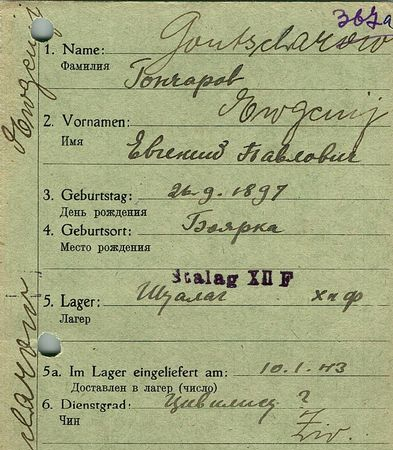 367a
1. Name: Gontscharow
Фамилия Гончаров
2. Vornamen: Ewgenij
Имя Евгений Павлович
3. Geburtstag: 26.9.1897
День рождения
4. Geburtsort: Боярка
Место рождения
Stalag XII F
5. Lager: Шталаг XII Ф
Лагерь
5a. Im Lager eingeliefert am: 10.1.43
Доставлен в лагерь (число)
6. Dienstgrad: Цивилист ?
Чин Ziv.
Ewgenij